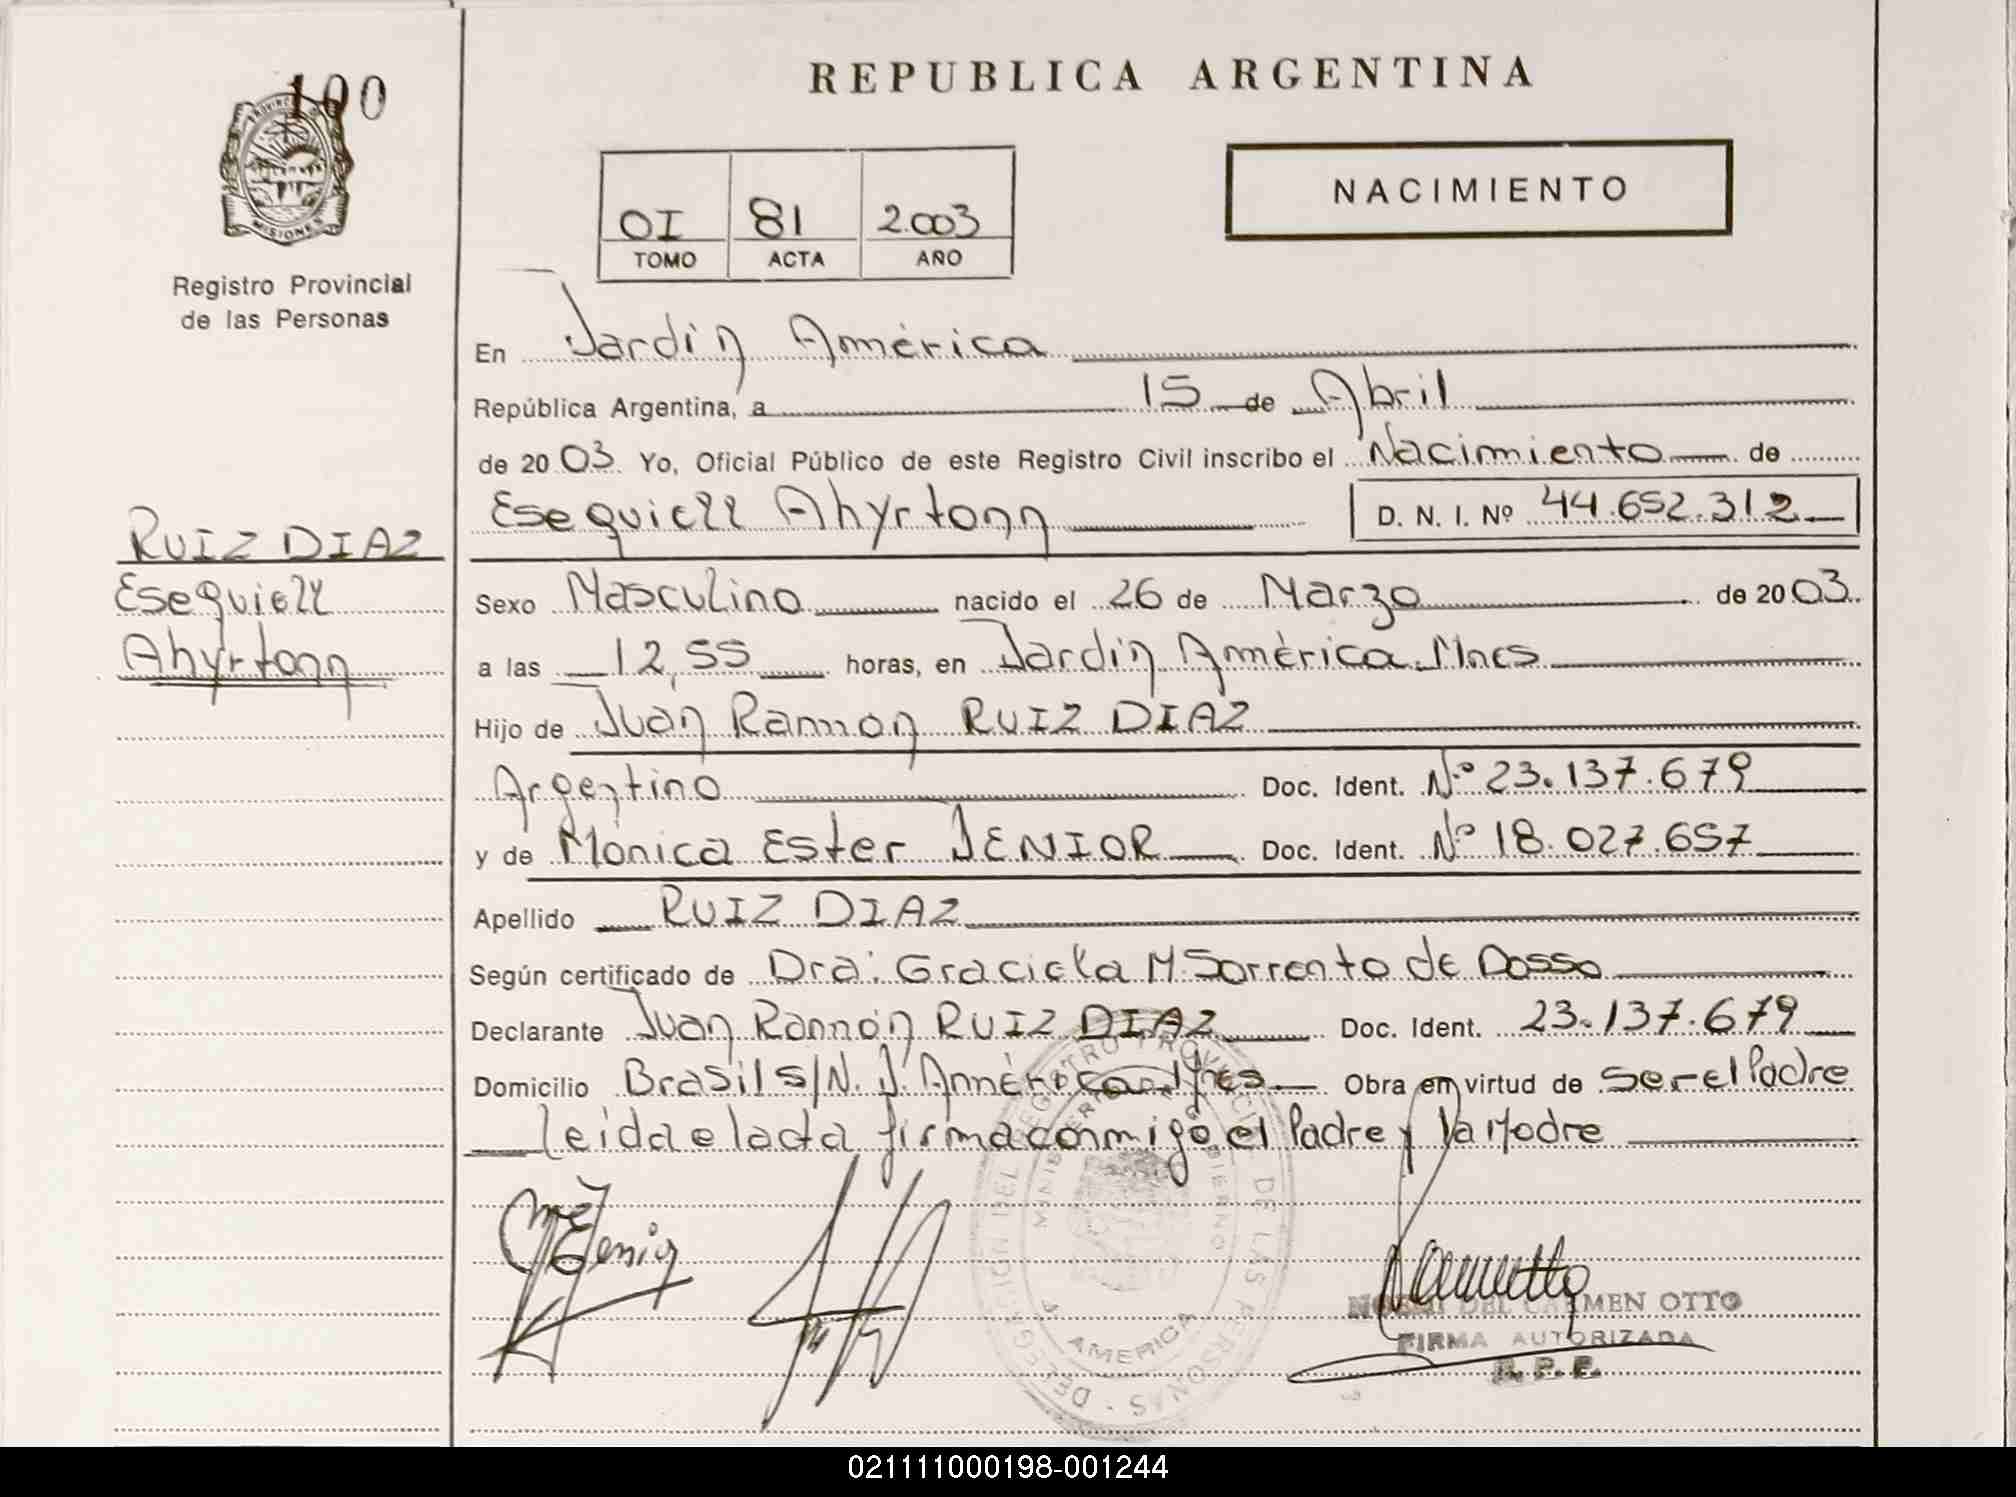 100
MISIONES
Registro Provincial
de las Personas
RUIZ DIAZ
Esequiell
Ahyrtonn
REPUBLICA ARGENTINA
OI 81 2.003
TOMO ACTA AÑO
NACIMIENTO
En Jardin América
República Argentina, a 15 de Abril
de 2003 Yo, Oficial Público de este Registro Civil inscribo el Nacimiento de
Esequiell Ahyrtonn D. N. I. Nº 44.652.312
Sexo Masculino nacido el 26 de Marzo de 2003
a las 12,55 horas, en Jardin América Mnes
Hijo de Juan Ramon RUIZ DIAZ
Argentino Doc. Ident. Nº 23.137.679
y de Mónica Ester JENIOR Doc. Ident. Nº 18.027.657
Apellido RUIZ DIAZ
Según certificado de Dra: Graciela M. Sorrento de Dosso
Declarante Juan Ramón RUIZ DIAZ Doc. Ident. 23.137.679
Domicilio Brasil S/N. J. América Mnes Obra en virtud de ser el Padre
leida el acta firma conmigo el Padre y la Madre
DELEGACION DEL REGISTRO PROVINCIAL DE LAS PERSONAS
AMERICA
NOEMI DEL CARMEN OTTO
FIRMA AUTORIZADA
R. P. P.
021111000198-001244